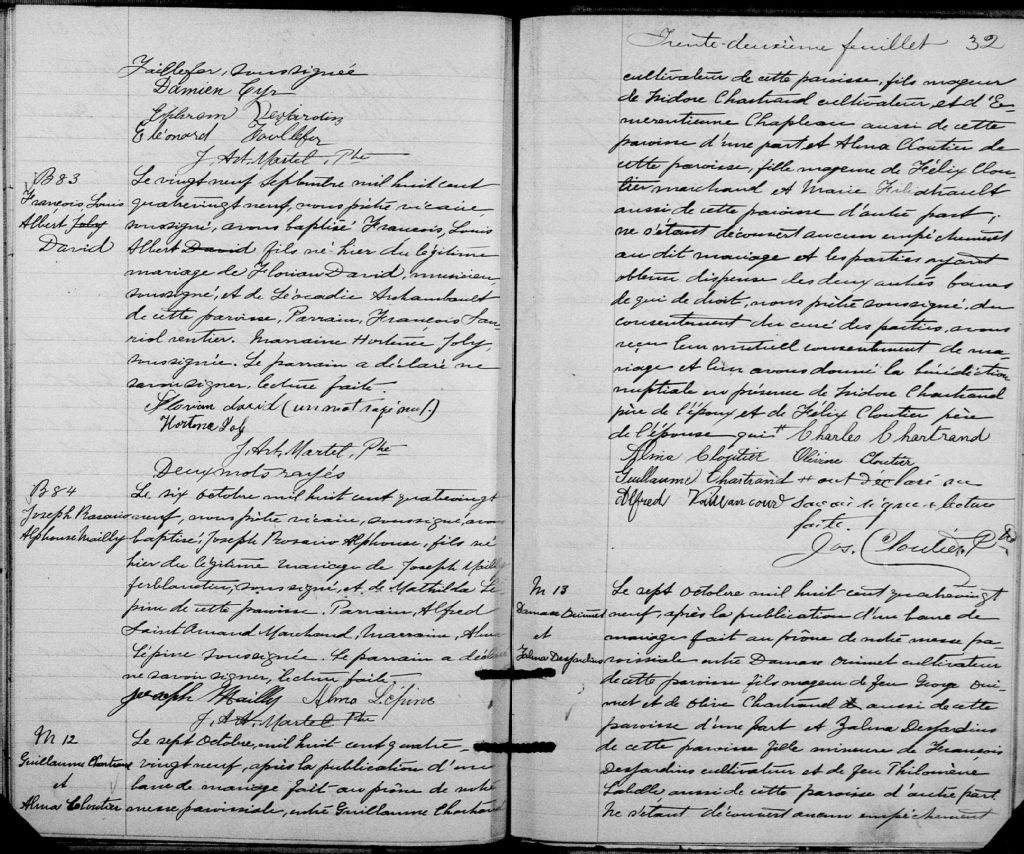 Taillefer, soussignée
Damien Cyr
Ephrem Desjardin
Eléonard Taillefer
J. Art. Martel, Ptre
B 83
François, Louis
Albert, Joly
David
Le vingt neuf Septembre mil huit cent
quatrevingt neuf, nous prêtre vicaire,
soussigné, avons baptisé François, Louis
Albert David, fils né hier du légitime
mariage de Florian David, musicien,
soussigné, et de Léocadie Archambault
de cette paroisse, Parrain, François Lau
riol rentier. Marraine Hortense Joly,
soussignée. Le parrain a déclaré ne
savoir signer, lecture faite.
Florian david (un mot rayé nul.)
J. Art. Martel, Ptre
Deux mots rayés
B 84
Joseph Rosario
Alphonse Mailly
Le six octobre mil huit cent quatrevingt
neuf, nous prêtre vicaire, soussigné, avons
baptisé, Joseph Rosario Alphonse, fils né
hier du légitime mariage de Joseph Mailly
ferblantier, soussigné, et de Mathilda Lé
pine de cette paroisse. Parrain, Alfred
Saint Amand Marchand, Marraine, Alma
Lépine soussignée. Le parrain a déclaré
ne savoir signer, lecture faite.
Joseph Mailly Alma Lépine
J. Art. Martel Ptre
M 12
Guillaume Chartrand
et
Alma Cloutier
Le sept octobre, mil huit cent quatre-
vingt neuf, après la publication d'un
banc de mariage fait au prône de notre
messe paroissiale, entre Guillaume Chartrand
Trente-deuxième feuillet 32
cultivateur de cette paroisse, fils majeur
de Isidore Chartrand cultivateur, et d'E
merentienne Chapleau aussi de cette
paroisse d'une part et Alma Cloutier de
cette paroisse, fille majeure de Félix Clou
tier marchand et Marie Filiatrault
aussi de cette paroisse d'autre part,
ne s'étant découvert aucun empêchement
au dit mariage et les parties ayant
obtenu dispense des deux autres bancs
de qui de droit, nous prêtre soussigné, du
consentement du curé des parties, avons
reçu leur mutuel consentement de ma-
riage et leur avons donné la bénédiction
nuptiale en présence de Isidore Chartrand
père de l'époux et de Félix Cloutier père
de l'épouse qui Charles Chartrand
Alma Cloutier Olivine Cloutier
Guillaume Chartrand ont déclaré ne
Alfred Vaillancour savoir signer lecture
faite.
Jos. Cloutier Ptre
M 13
Damase Ouimet
et
Zalma Desjardins
Le sept octobre mil huit cent quatrevingt
neuf, après la publication d'un banc de
mariage fait au prône de notre messe pa-
roissiale entre Damase Ouimet cultivateur
de cette paroisse fils majeur de feu George Oui
met et de Olive Chartrand aussi de cette
paroisse d'une part et Zalma Desjardins
de cette paroisse fille mineure de François
Desjardins cultivateur et de feu Philomène
Labelle aussi de cette paroisse d'autre part.
Ne s'étant découvert aucun empêchement